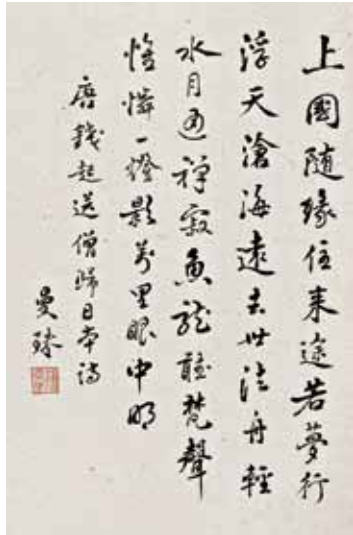 上國隨緣住来途若夢行
浮天滄海遠去世法舟輕
水月通禪寂魚龍聽梵聲
惟憐一燈影萬里眼中明
唐錢起送僧歸日本詩
曼